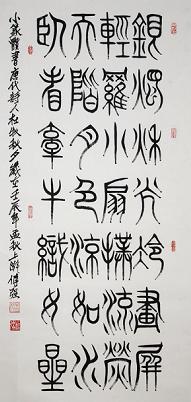 銀燭秋光冷畫屏
輕羅小扇撲流螢
天階月色涼如水
臥看牽牛織女星
小篆體書唐代詩人杜牧秋夕歲在壬辰年孟秋上浣